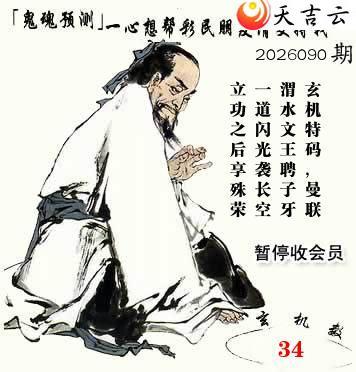 天吉云
「鬼魂预测」一心想帮彩民朋
2026090期
玄机特码，曼联
渭水文王聘子牙
一道闪光袭长空
立功之后享殊荣
暂停收会员
玄机数
34